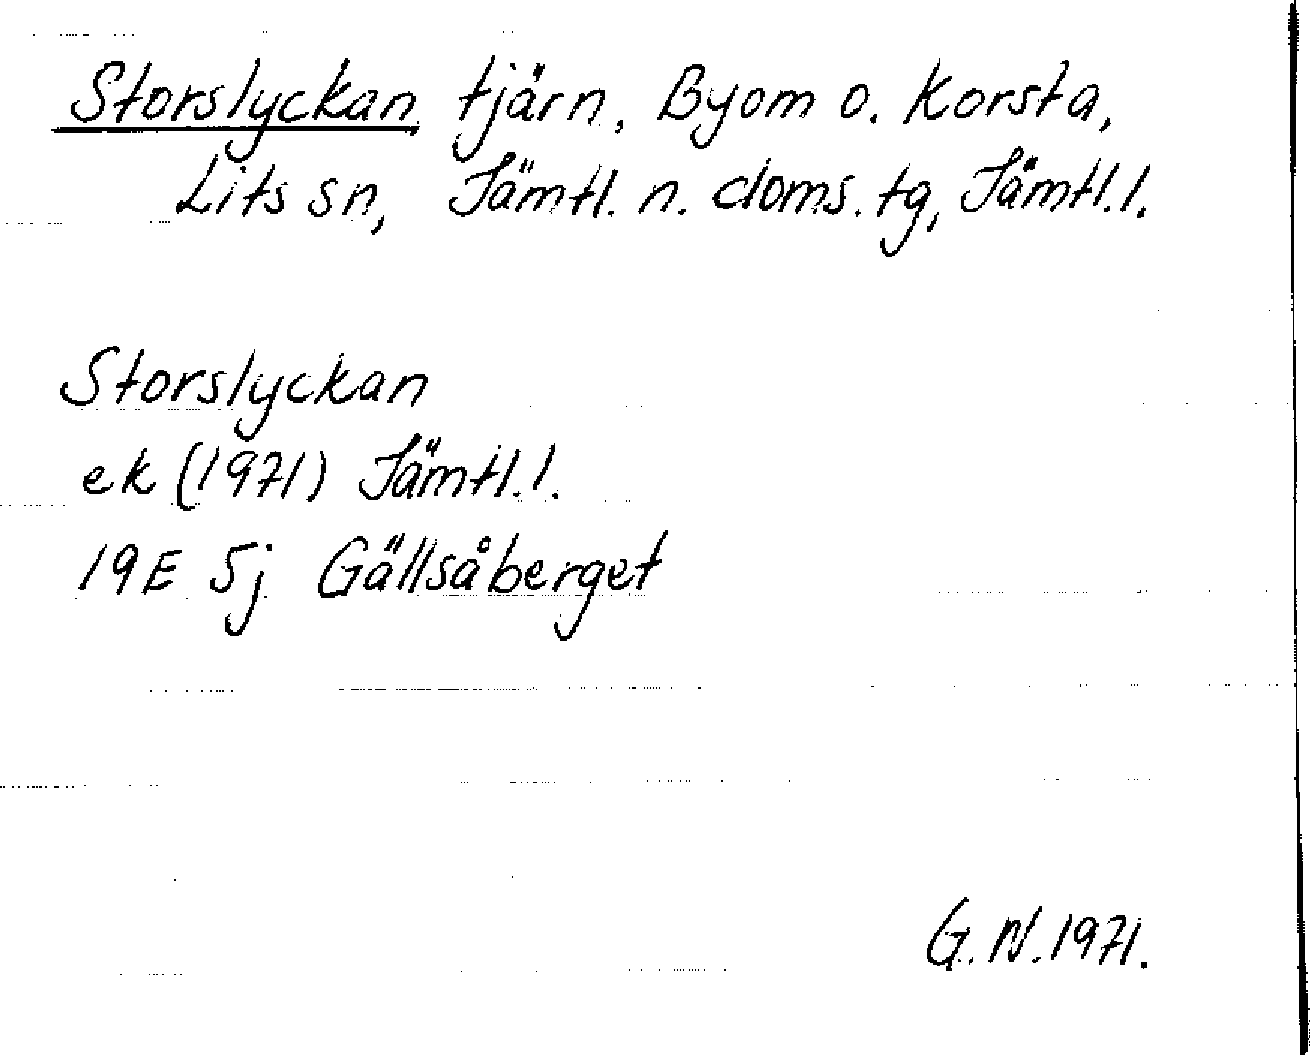 Storslyckan, tjärn, Byom o. Korsta,
Lits sn, Jämtl. n. doms. tg, Jämtl. l.
Storslyckan
ek (1971) Jämtl. l.
19E 5j Gällsåberget
G. N. 1971.